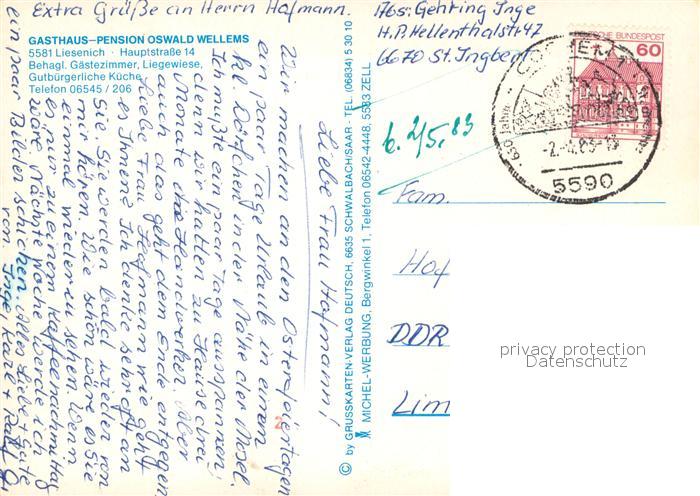 Extra Grüße an Herrn Hofmann.
GASTHAUS–PENSION OSWALD WELLEMS
5581 Liesenich · Hauptstraße 14
Behagl. Gästezimmer, Liegewiese,
Gutbürgerliche Küche
Telefon 06545 / 206
Liebe Frau Hofmann!
Wir machen an den Osterfeiertagen
ein paar Tage Urlaub in einem
kl. Dörfchen in der Nähe der Mosel.
Ich mußte ein paar Tage ausspannen,
denn wir hatten zu Hause drei
Monate die Handwerker. Aber
auch das geht dem Ende entgegen.
Liebe Frau Hofmann wie geht
es Ihnen? Ich denke sehr oft an
Sie. Sie werden bald wieder von
mir hören. Wie schön wäre es Sie
einmal wieder zu sehen. Wenn
es nur zu einem Kaffeenachmittag
wäre. Nächste Woche werde ich
ein paar Bilder schicken. Alles Liebe + Gute
von Inge Karl + Ralf
© by GRUSSKARTEN-VERLAG DEUTSCH, 6635 SCHWALBACH/SAAR · TEL. (06834) 5 30 10
MICHEL-WERBUNG, Bergwinkel 1, Telefon 06542-4448, 5583 ZELL
Abs: Gehring Inge
H.P. Hellenthalstr 47
6670 St. Ingbert
DEUTSCHE BUNDESPOST
60
COCHEM
650 Jahre
5590
b. 2/5. 83
Fam.
Hof
DDR
Lim
privacy protection
Datenschutz